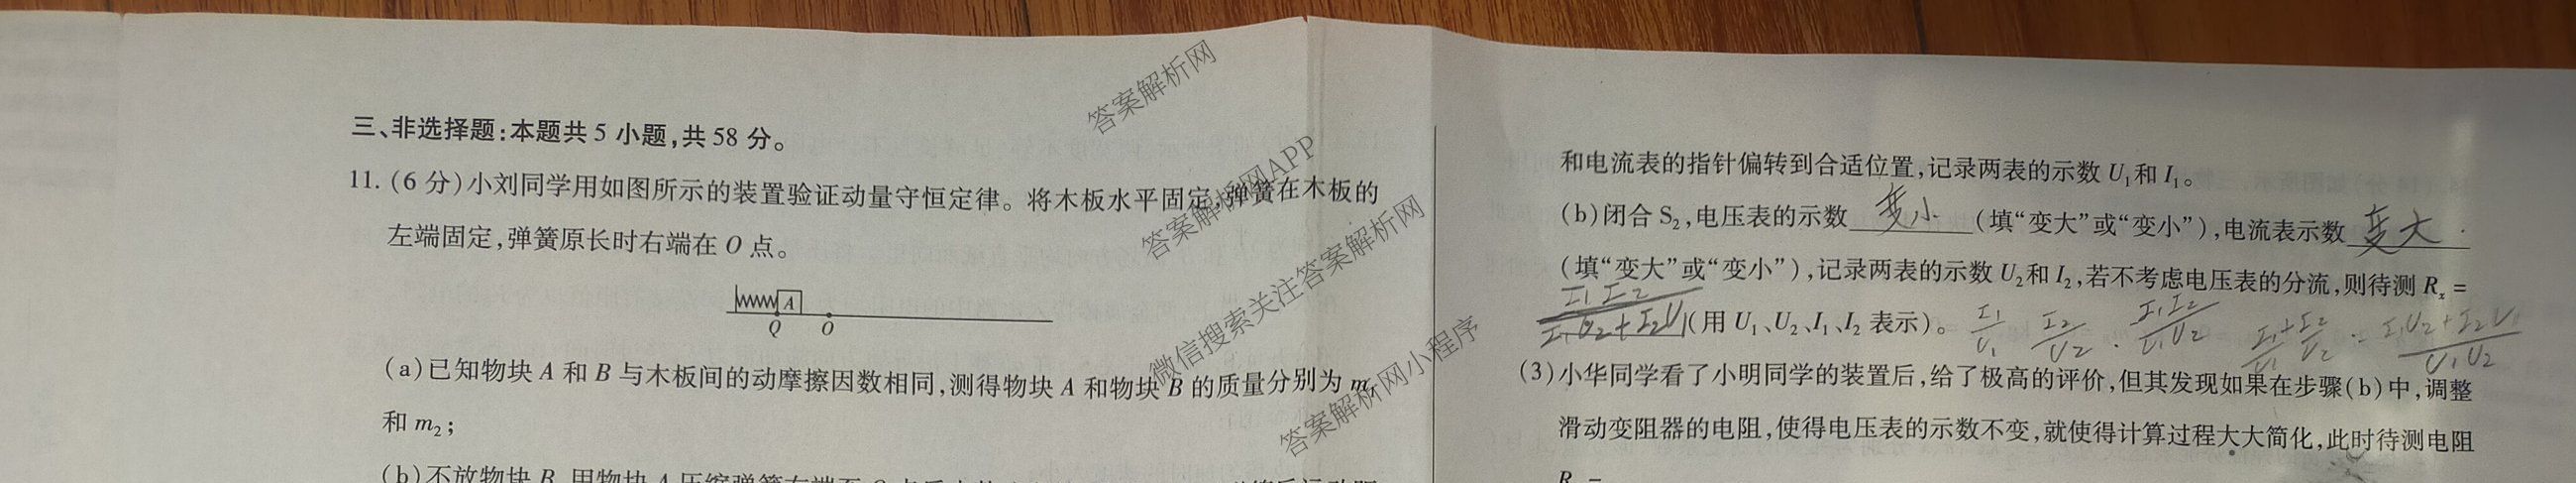 三、非选择题:本题共5小题,共58分。
11.(6分)小刘同学用如图所示的装置验证动量守恒定律。将木板水平固定,弹簧在木板的
左端固定,弹簧原长时右端在O点。
A
Q O
(a)已知物块A和B与木板间的动摩擦因数相同,测得物块A和物块B的质量分别为m₁
和m₂;
(b)不放物块B,用物块A压缩弹簧右端至
和电流表的指针偏转到合适位置,记录两表的示数U₁和I₁。
(b)闭合S₂,电压表的示数 变小 (填“变大”或“变小”),电流表示数 变大
(填“变大”或“变小”),记录两表的示数U₂和I₂,若不考虑电压表的分流,则待测Rₓ=
(用U₁、U₂、I₁、I₂表示)。
(3)小华同学看了小明同学的装置后,给了极高的评价,但其发现如果在步骤(b)中,调整
滑动变阻器的电阻,使得电压表的示数不变,就使得计算过程大大简化,此时待测电阻
答案解析网
答案解析网APP
微信搜索关注答案解析网
答案解析网小程序